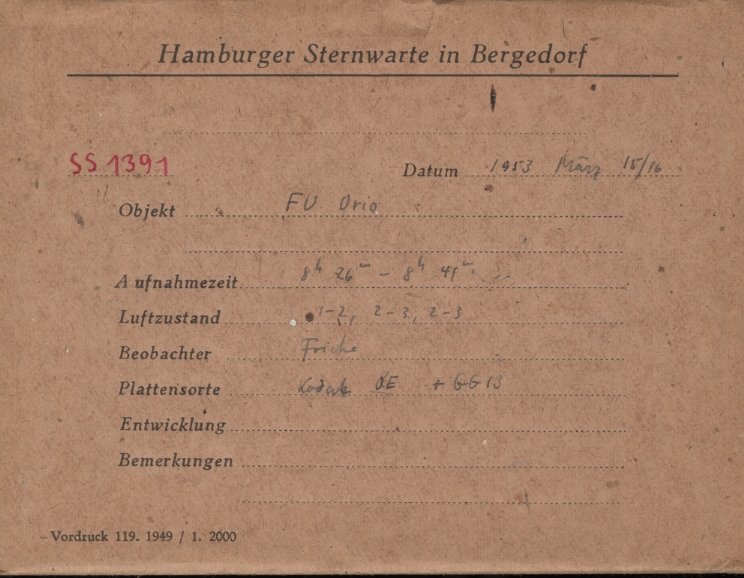 Hamburger Sternwarte in Bergedorf
SS 1391 Datum 1953 März 15/16
Objekt FU Orio
Aufnahmezeit 8h 26m - 8h 41m
Luftzustand 1-2, 2-3, 2-3
Beobachter Fricke
Plattensorte Kodak OE + GG13
Entwicklung
Bemerkungen
Vordruck 119. 1949 / 1. 2000